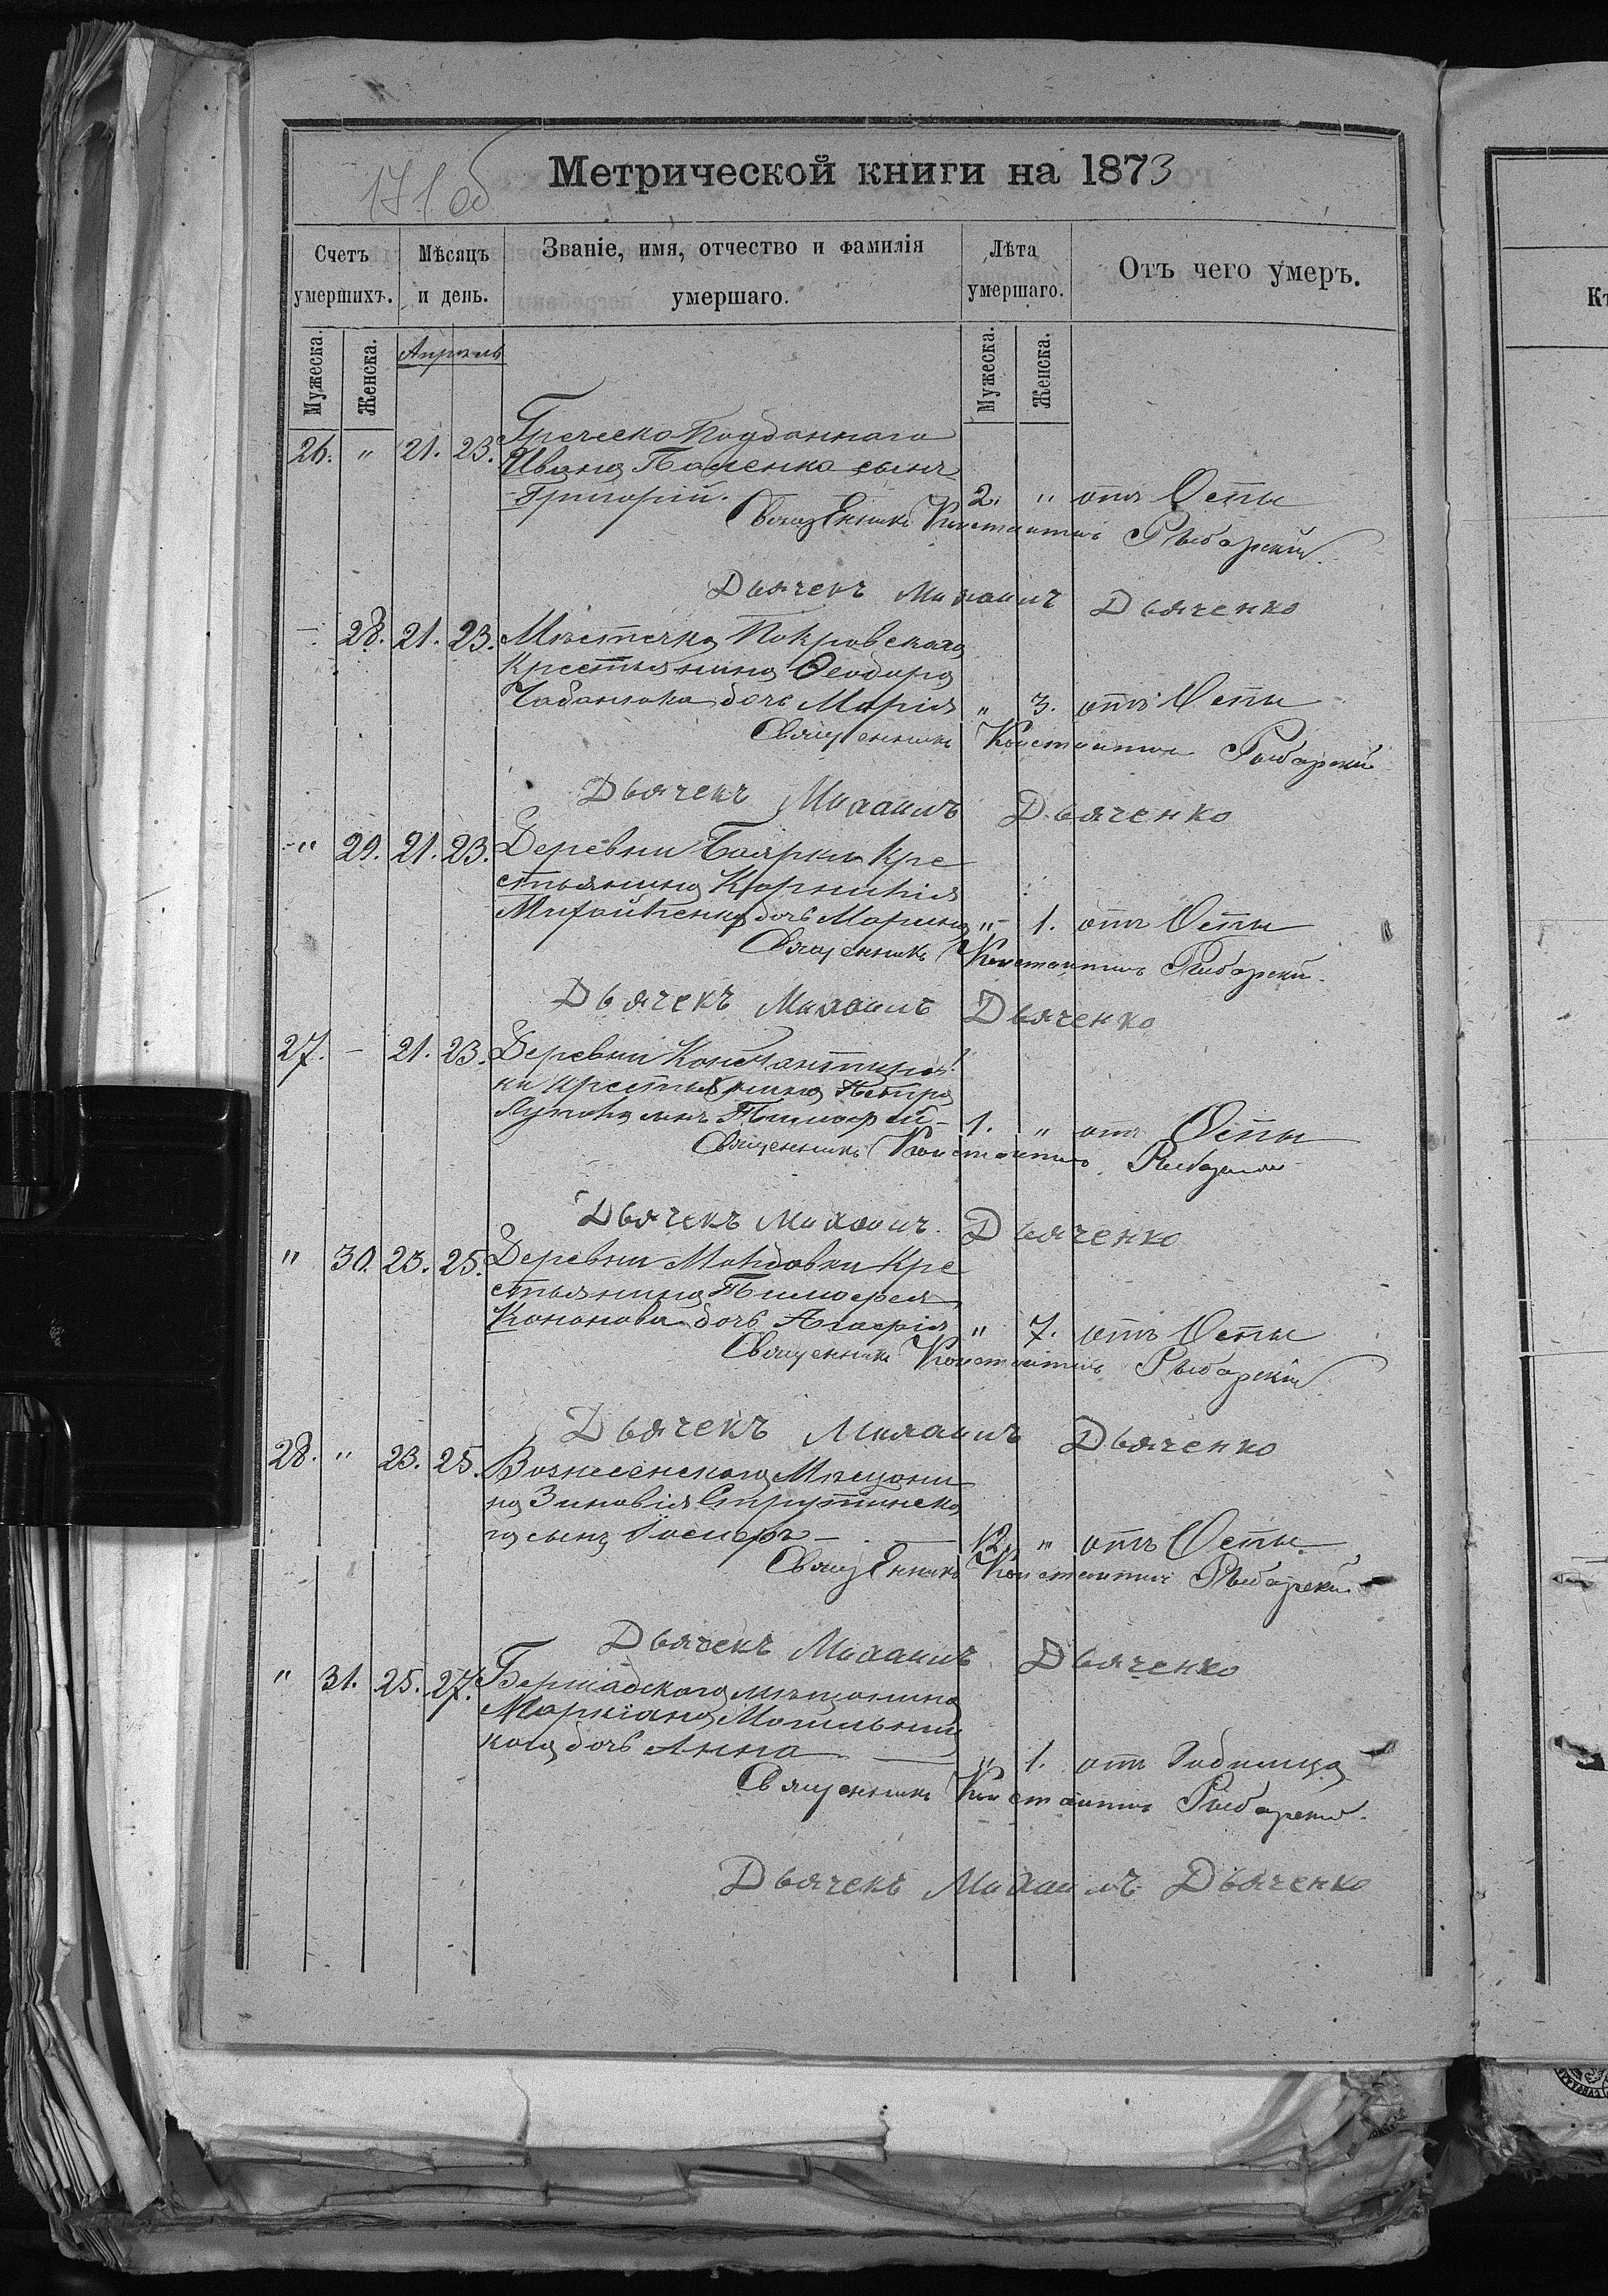 171 об
Метрической книги на 1873
Счетъ умершихъ.
Мѣсяцъ и день.
Званіе, имя, отчество и фамилія умершаго.
Лѣта умершаго.
Отъ чего умеръ.
Мужеска. Женска. Апрѣль Мужеска. Женска.
Греческо Подданнаго
26. " 21. 23. Ивана сынъ
Григорій. 2. " отъ Оспы
Священникъ Константинъ Рыбарскій
Дьячекъ Михаилъ Дьяченко
- 28. 21. 23. Мѣстечка Покровскаго
Крестьянина Ѳеодора
Чабанюка дочь Марія " 3. отъ Оспы
Священникъ Константинъ Рыбарскій
Дьячекъ Михаилъ Дьяченко
-" 29. 21. 23. Деревни Боярки Кре
стьянина Корнилія
дочь Марина " - 1. отъ Оспы
Священникъ Константинъ Рыбарскій.
Дьячекъ Михаилъ Дьяченко
27. - 21. 23. Деревни Константинов
ки крестьянина Петра
сынъ Тимоѳей - 1. " отъ Оспы
Священникъ Константинъ Рыбарскій
Дьячекъ Михаилъ Дьяченко
" 30. 23. 25. Деревни Кре
стьянина Тимоѳея
Кононова дочь Агафія " 7. отъ Оспы
Священникъ Константинъ Рыбарскій
Дьячекъ Михаилъ Дьяченко
28. " 23. 25. Вознесенскаго Мѣщани
на Зиновія Струтинска
го сынъ - 12. " отъ Оспы.
Священникъ Константинъ Рыбарскій
Дьячекъ Михаилъ Дьяченко
" 31. 25. 27. Бершадскаго мѣщанина
Маркіана Могильниц
каго дочь Анна - " 1. отъ Родимца
Священникъ Константинъ Рыбарскій.
Дьячекъ Михаилъ Дьяченко